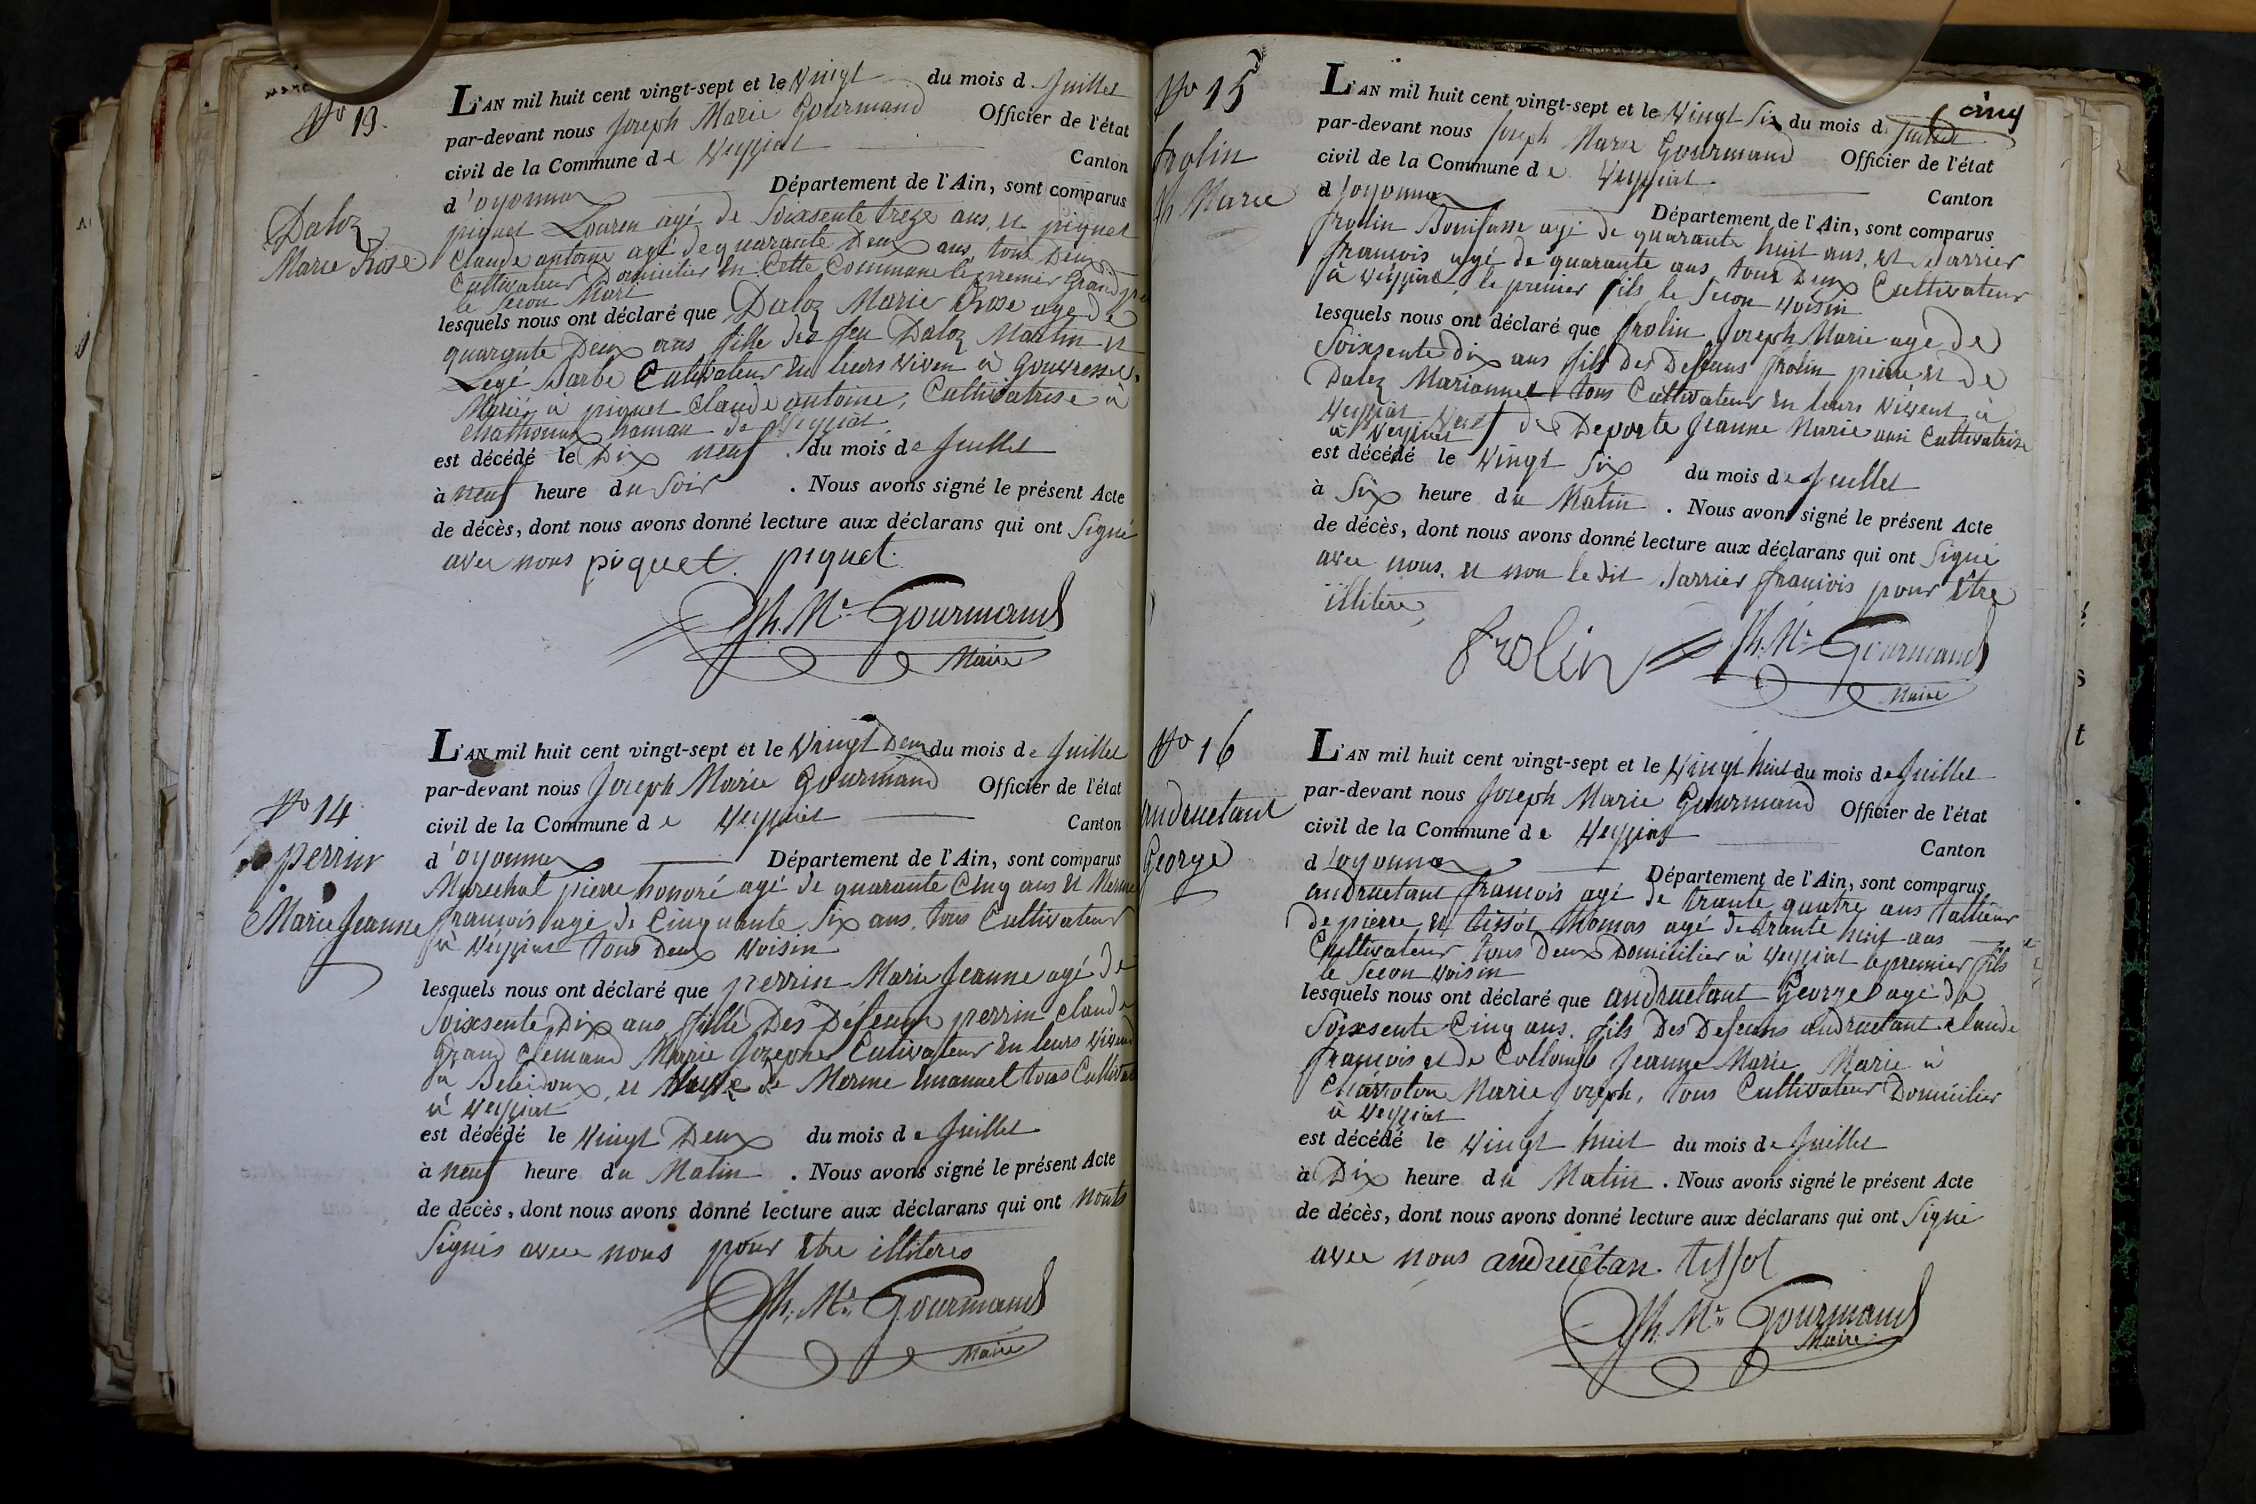 No 13.
Daloz
Marie Rose
L'AN mil huit cent vingt-sept et le vingt du mois de Juillet
par-devant nous Joseph Marie Gourmand Officier de l'état
civil de la Commune de Veyziat Canton
d'oyonnax Département de l'Ain, sont comparus
piquet Louren agé de Soixsente treze ans, et piquet
Claude antoine agé de quarante Deux ans, tous Deux
Cultivateur Domicilier En Cette Commune le premier Grand
le Secon Mari
lesquels nous ont déclaré que Daloz Marie Rose agé de
quarante Deux ans fille des feu Daloz Martin et
Legé Barbe Cultivateur En leurs viven à
Marié à piquet Claude antoine, Cultivatrise à
hamau de Veyziat
est décédé le Dix neuf du mois de Juillet
à neuf heure du Soir. Nous avons signé le présent Acte
de décès, dont nous avons donné lecture aux déclarans qui ont Signé
avec nous piquet. piquet.
Jh. Mie Gourmand
Maire
No 14
perrin
Marie Jeanne
L'AN mil huit cent vingt-sept et le Vingt Deux du mois de Juillet
par-devant nous Joseph Marie Gourmand Officier de l'état
civil de la Commune de Veyziat Canton
d'oyonnax Département de l'Ain, sont comparus
Marechal pierre honoré agé de quarante Cinq ans Et Merme
francois agé de Cinquante Six ans, tous Cultivateur
à Veyziat tous Deux Voisin
lesquels nous ont déclaré que perrin Marie Jeanne agé de
Soixsente Dix ans fille Des Defeun perrin claude
Grand Clemand Marie Jozephe Cultivateur En leurs vivend
a, et de Merme Emanuel tous Cultivat
à Veyziat
est décédé le Vingt Deux du mois de Juillet
à neuf heure du Matin. Nous avons signé le présent Acte
de décès, dont nous avons donné lecture aux déclarans qui ont nonts
Signés avec nous pour Etre illiteres
Jh. Mie Gourmand
Maire
cinq
No 15
frolin
Jh Marie
L'AN mil huit cent vingt-sept et le Vingt Six du mois de Juillet
par-devant nous Joseph Marie Gourmand Officier de l'état
civil de la Commune de Veyziat Canton
d'oyonnax Département de l'Ain, sont comparus
frolin Bonifasse agé de quarante huit ans, Et Jarrier
francois agé de quarante ans tous Deux Cultivateur
à Veyziat, le premier fils le Secon Voisin
lesquels nous ont déclaré que frolin Joseph Marie agé de
Soixsente Dix ans fils Des Deffeuns frolin pierre Et De
Daloz Marianne tous Cultivateur En leurs vivent à
Veyziat Veuf de Deporte Jeanne Marie ausi Cultivatrise
à Veyziat
est décédé le Vingt Six du mois de Juillet
à Six heure du Matin. Nous avons signé le présent Acte
de décès, dont nous avons donné lecture aux déclarans qui ont Signé
avec nous, Et non le dit Jarrier francois pour Etre
illitere,
frolin Jh. Mie Gourmand
Maire
No 16
andruetant
George
L'AN mil huit cent vingt-sept et le Vingt huit du mois de Juillet
par-devant nous Joseph Marie Gourmand Officier de l'état
civil de la Commune de Veyziat Canton
d'oyonnax Département de l'Ain, sont comparus
andruetant francois agé de trante quatre ans tallieur
de pierre Et tissot thomas agé de trante huit ans
Cultivateur tous Deux Domicilier à Veyziat le premier fils
le Secon Voisin
lesquels nous ont déclaré que andruetant George agé de
Soixsente Cinq ans. fils Des Defeuns andruetant Claude
francois et de Collomb Jeanne Marie Marié à
Charroton Marie Joseph, tous Cultivateur Domicilier
à Veyziat
est décédé le Vingt huit du mois de Juillet
à Dix heure du Matin. Nous avons signé le présent Acte
de décès, dont nous avons donné lecture aux déclarans qui ont Signé
avec nous andruétan. tissot
Jh. Mie Gourmand
Maire